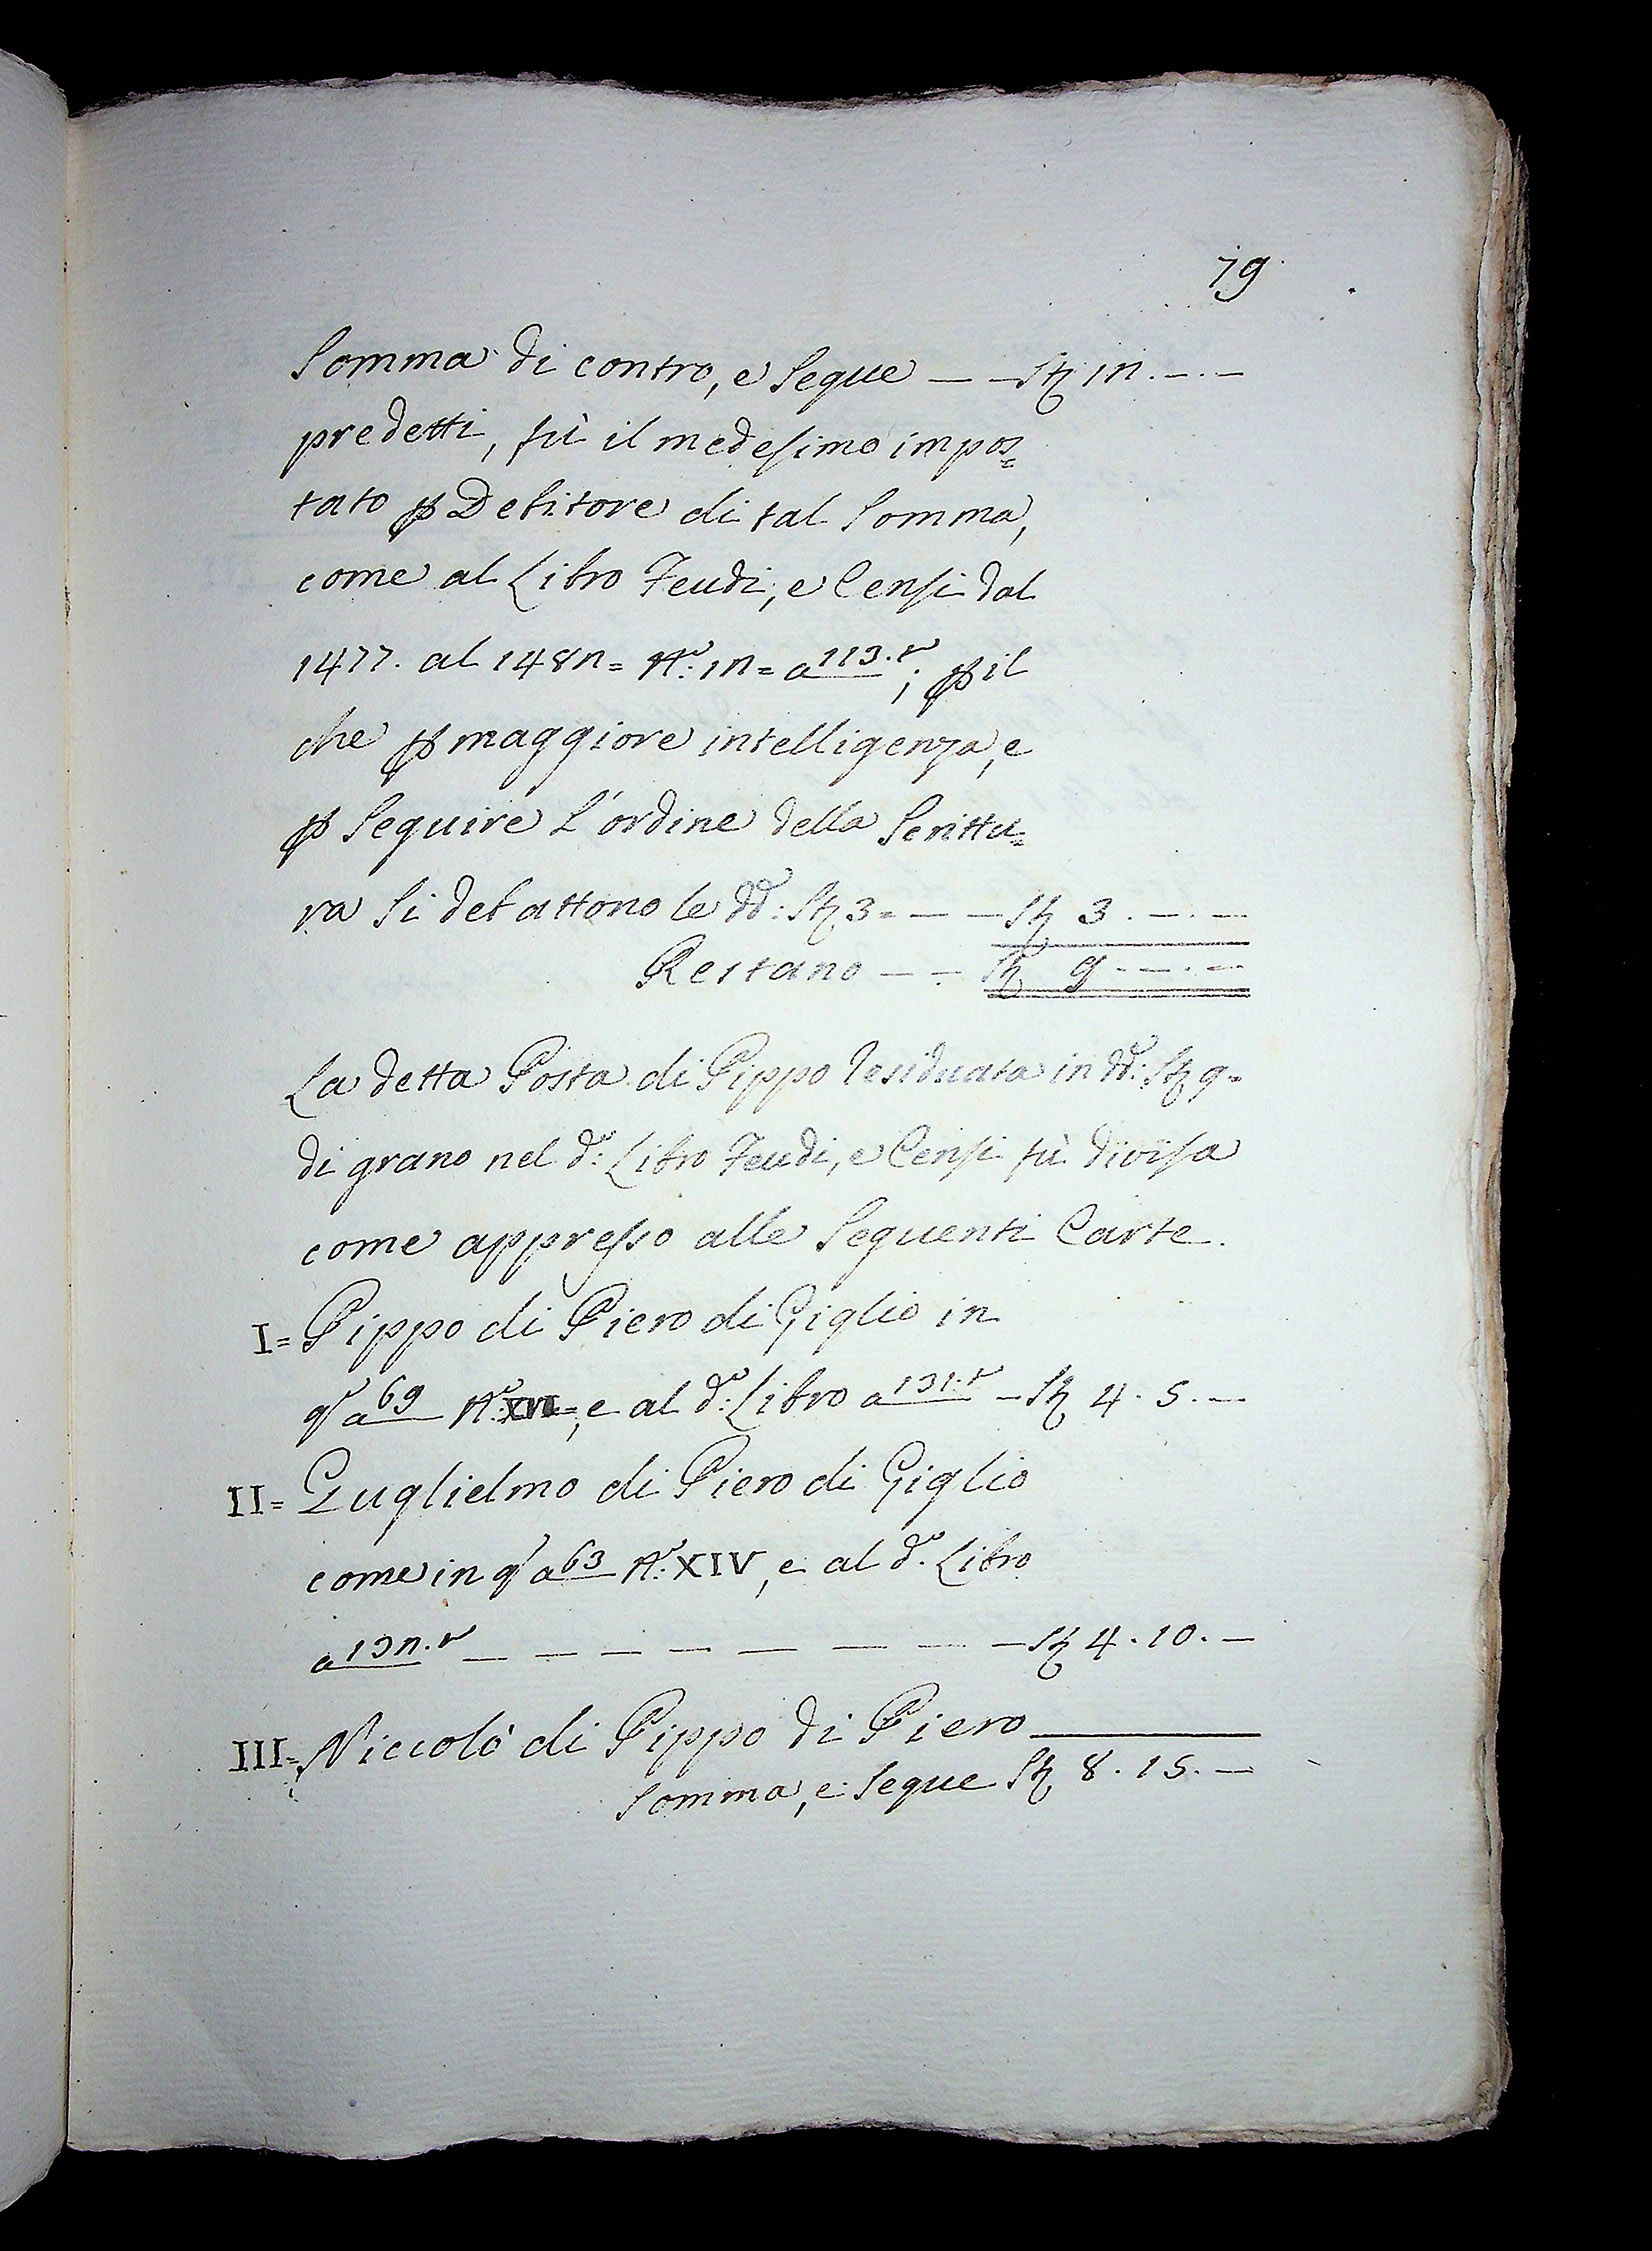 79
Somma di contro, e Segue — — Sta 12. —. —
predetti, fù il medesimo impos=
tato p Debitore di tal Somma,
come al Libro Feudi, e Censi dal
1477. al 1482= N.º 12= a 113.t; p il
che p maggiore intelligenza, e
p Seguire L'ordine della Scrittu=
ra Si debattono le dd.e: Sta 3= — — Sta 3. —. —
Restano — — Sta 9. —. —
La detta Posta di Pippo Residuata in dd.e: Sta 9=
di grano nel d.º: Libro Feudi, e Censi fù divisa
come appresso alle Seguenti Carte.
I= Pippo di Piero di Giglio in
q.o a 69 N.º: XVI=, e al d.º: Libro a 131.t — Sta 4. 5. —
II= Guglielmo di Piero di Giglio
come in q.o a 63 N.º: XIV, e al d.º. Libro
a 132.t — — — — — — — Sta 4. 10. —
III= Niccolò di Pippo di Piero
Somma, e Segue Sta 8. 15. —